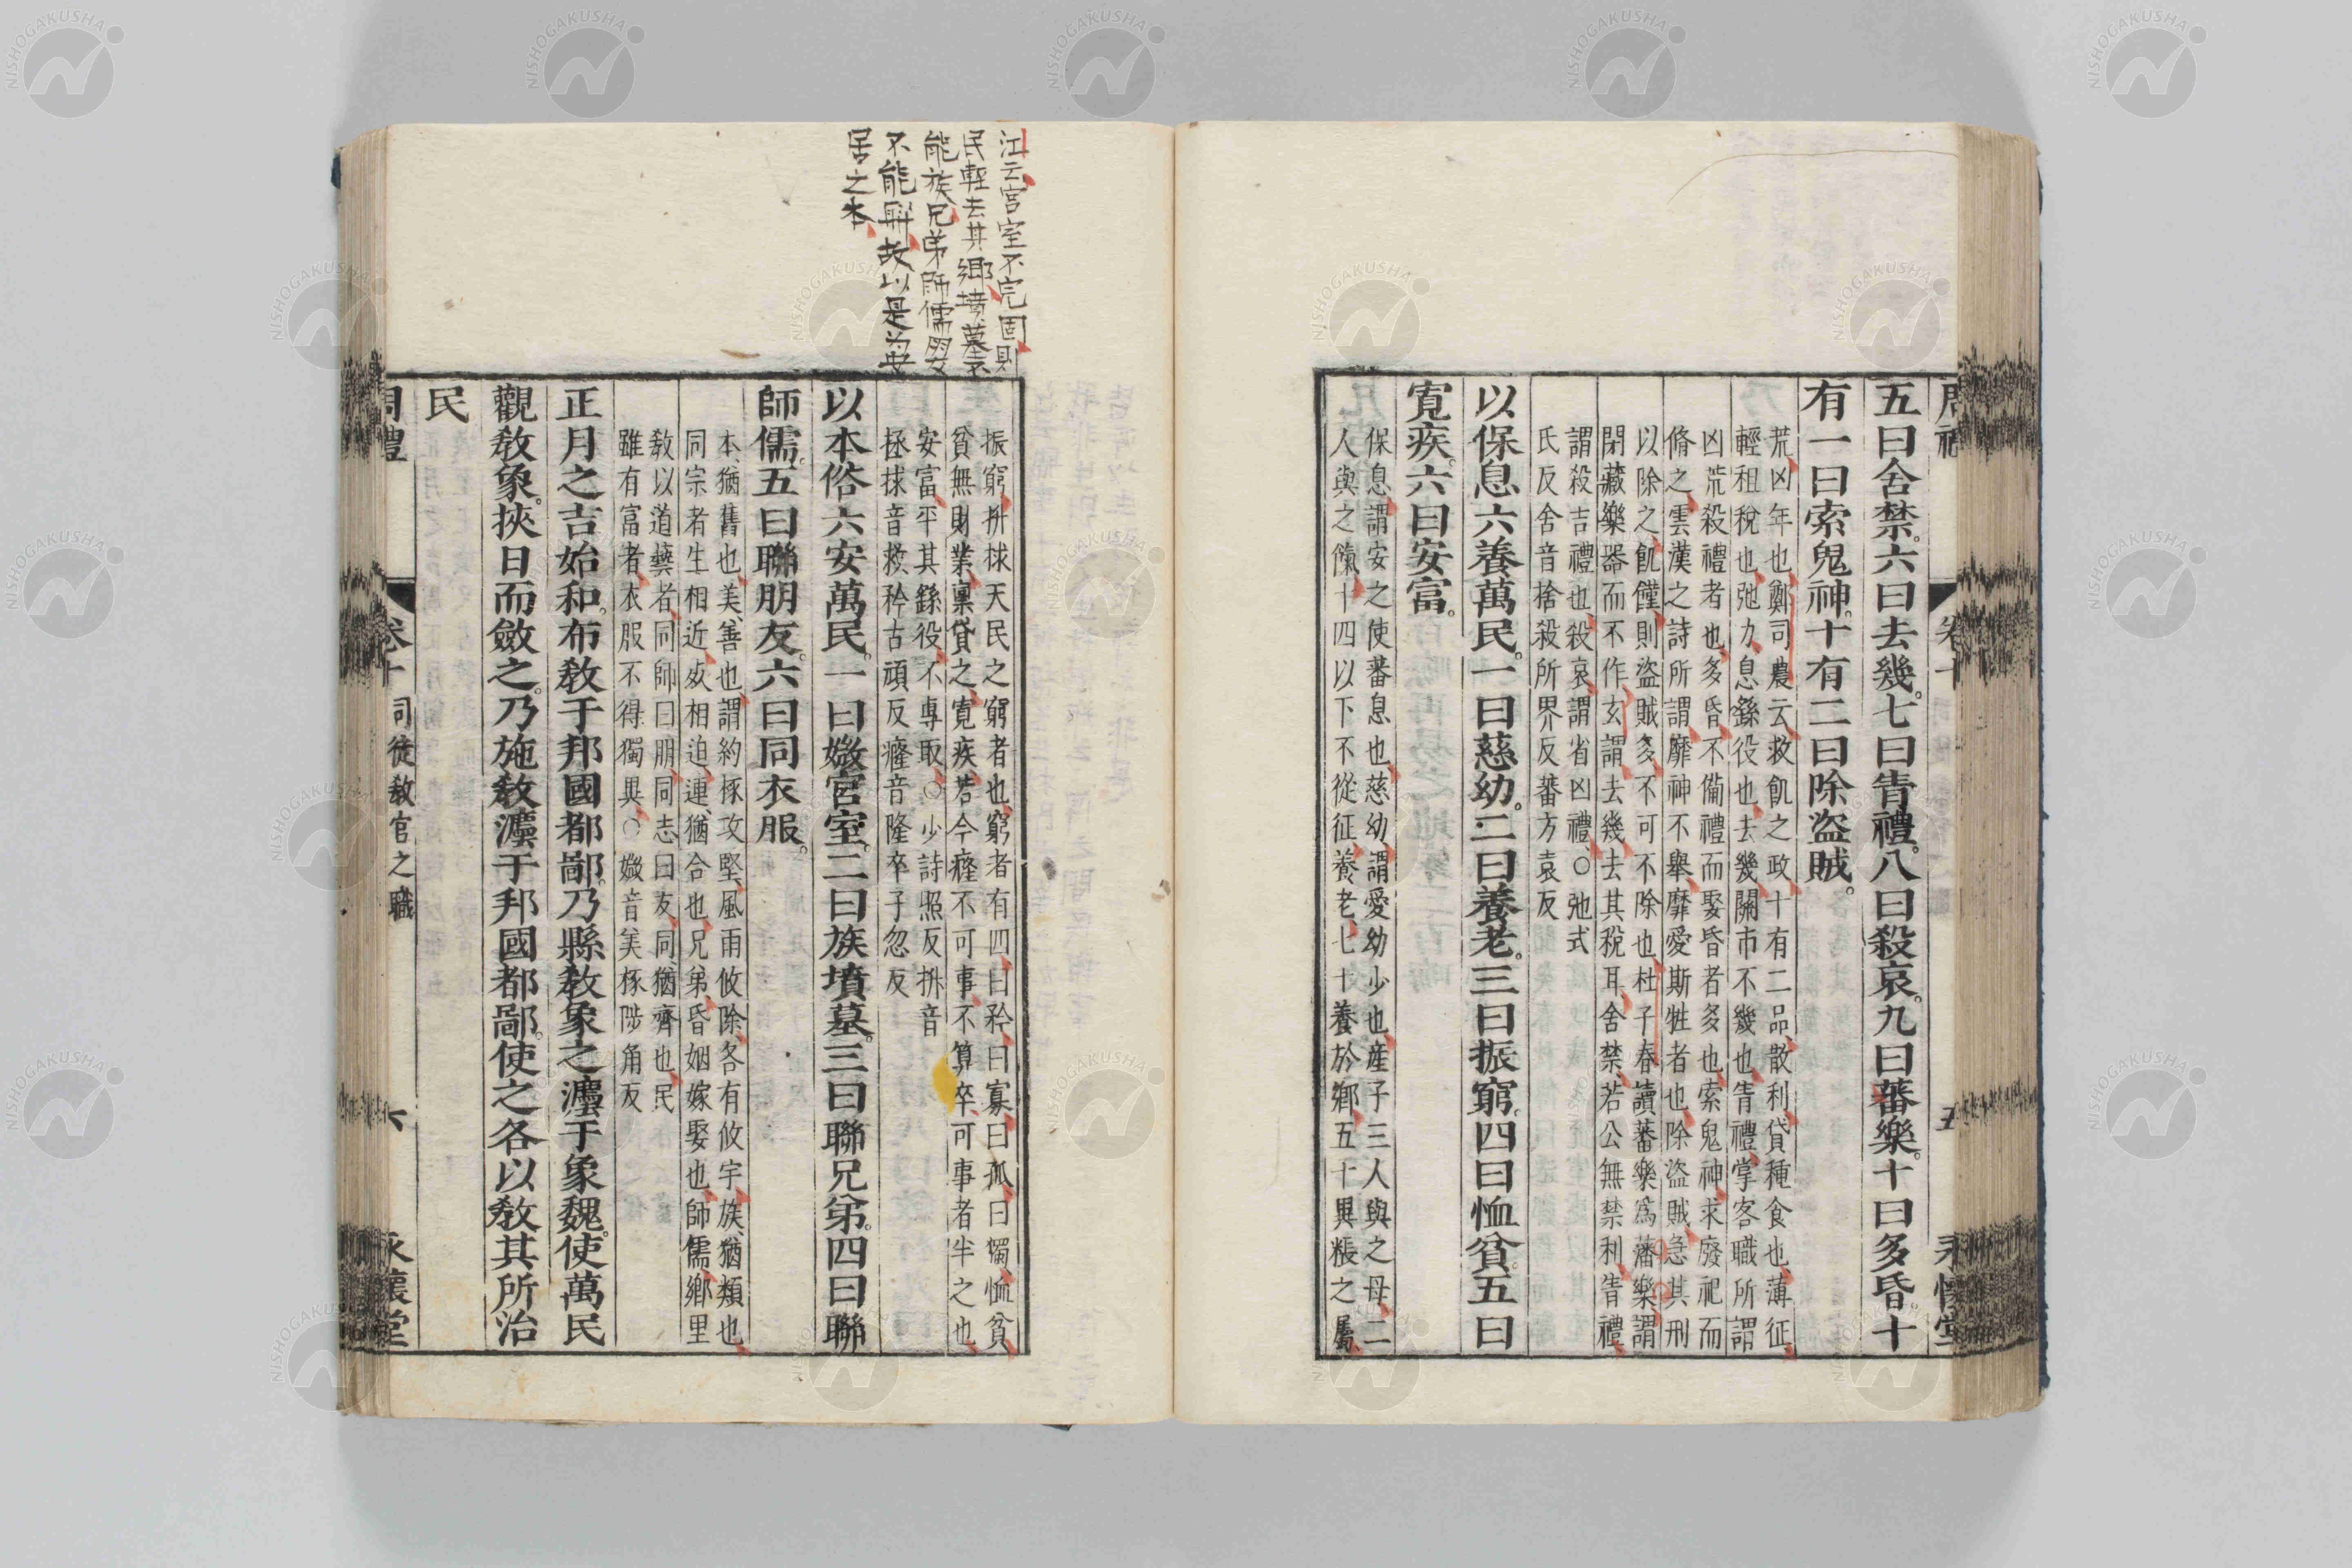 周禮
卷十
五
永懷堂
五曰舍禁。六曰去幾。七曰眚禮。八曰殺哀。九曰蕃樂。十曰多昏。十
有一曰索鬼神。十有二曰除盜賊。
荒凶年也鄭司農云救飢之政十有二品散利貸種食也薄征
輕租稅也弛力息繇役也去幾關市不幾也眚禮掌客職所謂
凶荒殺禮者也多昏不備禮而娶昏者多也索鬼神求廢祀而
脩之雲漢之詩所謂靡神不舉靡愛斯牲者也除盜賊急其刑
以除之飢饉則盜賊多不可不除也杜子春讀蕃樂爲藩樂謂
閉藏樂器而不作玄謂去幾去其稅耳舍禁若公無禁利眚禮
謂殺吉禮也殺哀謂省凶禮○弛式
氏反舍音捨殺所界反蕃方袁反
以保息六養萬民。一曰慈幼。二曰養老。三曰振窮。四曰恤貧。五曰
寬疾。六曰安富。
保息謂安之使蕃息也慈幼謂愛幼少也産子三人與之母二
人與之餼十四以下不從征養老七十養於鄉五十異粻之屬
江云宮室不完固則
民輕去其鄉墳墓不
能族兄弟師儒朋友
不能聯故以是為安
居之本
振窮拼捄天民之窮者也窮者有四曰矜曰寡曰孤曰獨恤貧
貧無財業稟貸之寬疾若今癃不可事不算卒可事者半之也
安富平其繇役不專取○少詩照反拼音
拯捄音救矜古頑反癃音隆卒子忽反
以本俗六安萬民。一曰媺宮室。二曰族墳墓。三曰聯兄弟。四曰聯
師儒。五曰聯朋友。六曰同衣服。
本猶舊也美善也謂約椓攻堅風雨攸除各有攸宇族猶類也
同宗者生相近死相迫連猶合也兄弟昏姻嫁娶也師儒鄉里
教以道藝者同師曰朋同志曰友同猶齊也民
雖有富者衣服不得獨異○媺音美椓陟角反
正月之吉始和。布教于邦國都鄙。乃縣教象之灋于象魏。使萬民
觀教象。挾日而斂之。乃施教灋于邦國都鄙。使之各以教其所治
民
周禮
卷十
司徒教官之職
六
永懷堂
NISHOGAKUSHA